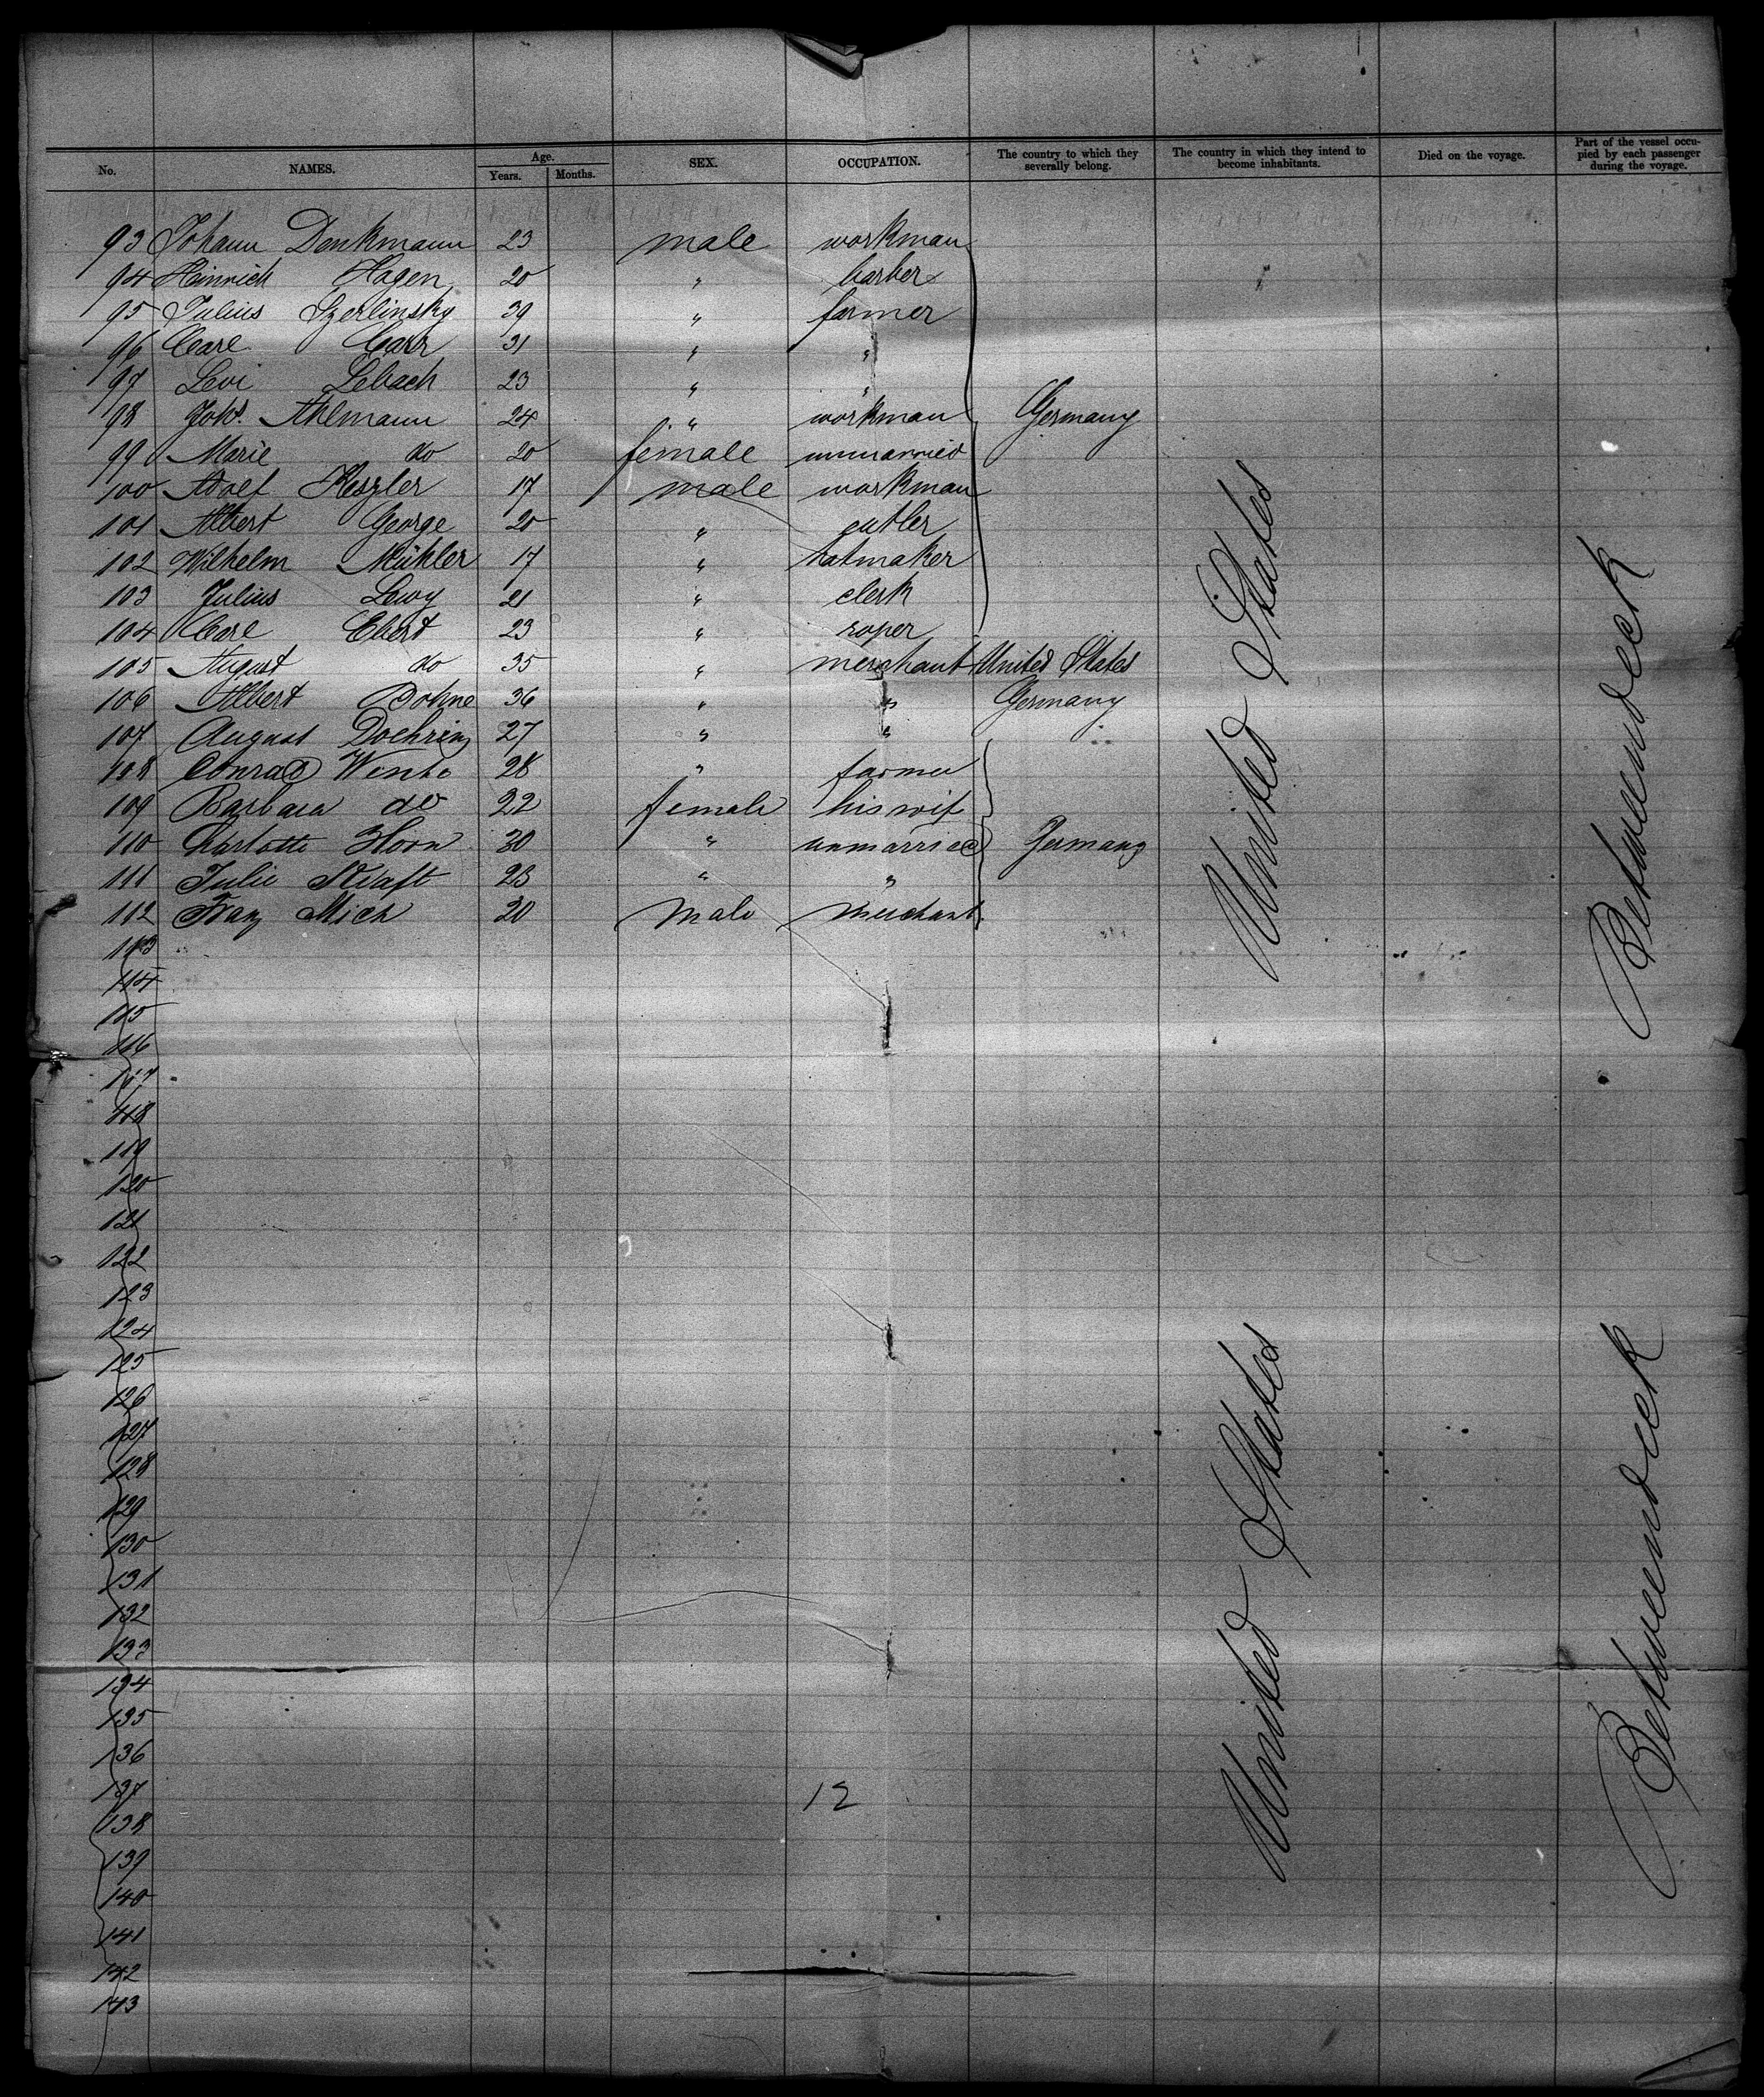 No. NAMES. Age. Years. Months. SEX. OCCUPATION. The country to which they severally belong. The country in which they intend to become inhabitants. Died on the voyage. Part of the vessel occupied by each passenger during the voyage.
93 Johann Denkmann 23 male workman
94 Heinrich Hagen 20 " barber
95 Julius Szerlinsky 39 " farmer
96 Carl Carr 31 " "
97 Levi Lebach 23 " "
98 Joh. Ahlmann 24 " workman Germany
99 Marie do 20 female unmarried
100 Adolf Keszler 17 male workman
101 Albert George 20 " cutler
102 Wilhelm Mühler 17 " hatmaker
103 Julius Lewy 21 " clerk
104 Carl Ebert 23 " roper
105 August do 35 " merchant United States
106 Albert Dohne 36 " " Germany
107 August Doehring 27 " "
108 Conrad 28 " farmer
109 Barbara do 22 female his wif
110 Charlotte Horn 30 " unmarried Germany
111 Julie Kraft 28 " "
112 Franz Mich 30 Male merchant
United States
Betweendeck
113
114
115
116
117
118
119
120
121
122
123
124
125
126
127
128
129
130
131
132
133
134
135
136
137 12
138
139
140
141
142
143
United States
Betweendeck